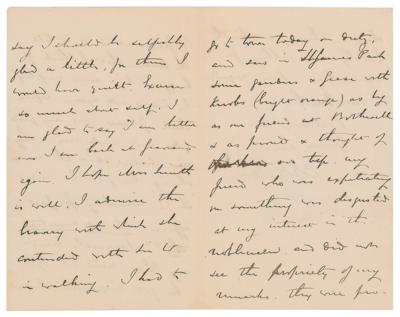 say I should be selfishly
glad a little, for then I
would have quite become
so much about self. I
am glad to say I am better
and I am back at
again. I hope Mrs
is well. I admire the
bravery with which she
contended with Sir W
in walking. I had to
go to town today on duty,
and saw in St James Park
some ganders & geese with
Knobs (bright orange) as big
as our friends at Bothwell
& as proud & thought of
our top my
friend who was expatiating
on something was disgusted
at my interest in the
and did not
see the propriety of my
remarks. They were pro-